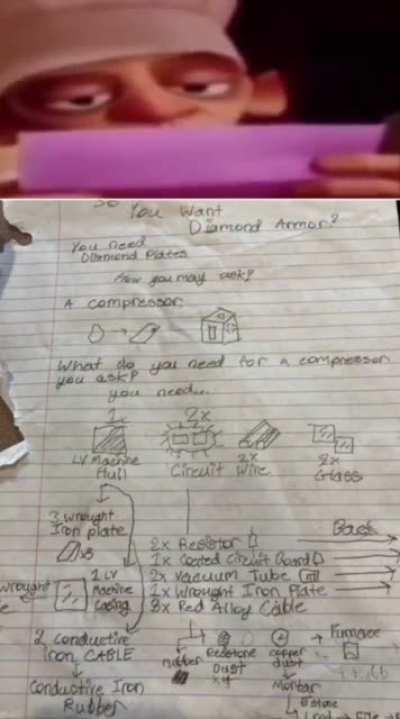 So You Want
Diamond Armor?
You need
Diamond Plates
How you may ask?
A compressor
What do you need for a compressor
you ask?
you need...
1x 2x
LV Machine Hull
Circuit
2x Wire
2x Glass
3 wrought
Iron plate
x8
2x Resistor
Back
1x Coated Circuit Board
2x Vacuum Tube
1x Wrought Iron Plate
3x Red Alloy Cable
wrought
1 LV
Machine
Casing
2 conductive
Iron CABLE
rubber
Redstone
Dust
x4
copper
dust
Furnace
Mortar
Conductive Iron
Rubber